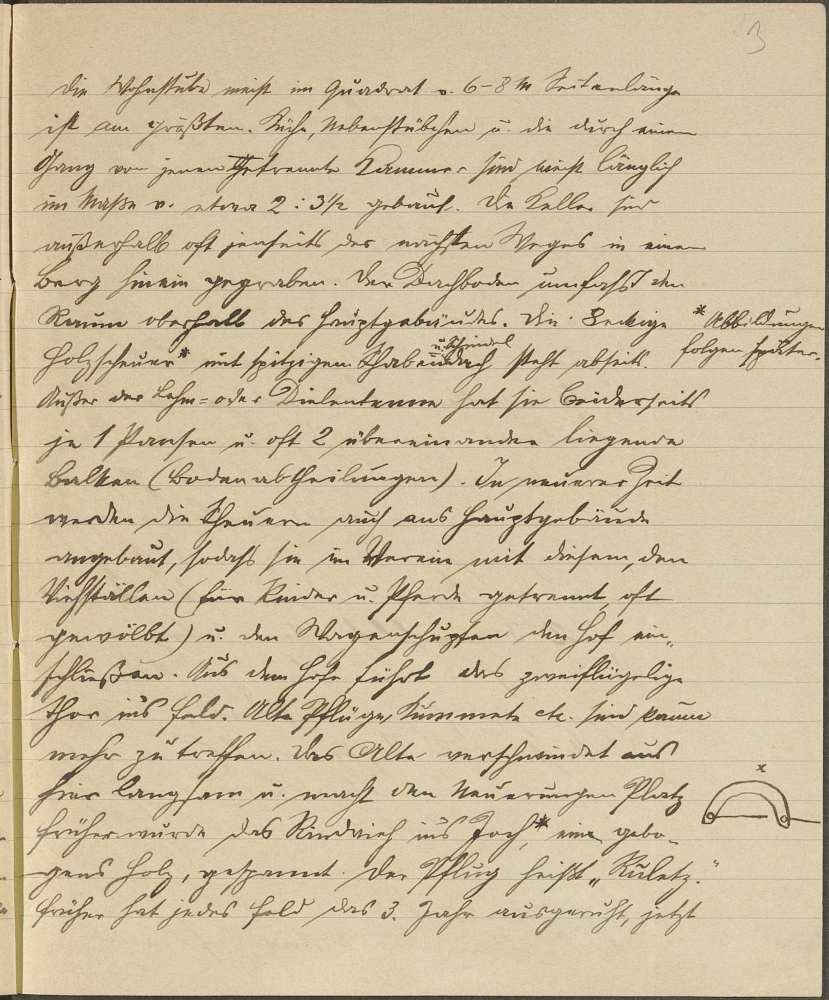 3
Die Wohnstube meist im Quadrat v. 6-8 m Seitenlänge
ist am größten. Küche, Nebenstübchen u. die durch einen
Gang von jenen getrennte Kammer sind meist länglich
im Maße v. etwa 2 : 3½ gebaut. Die Keller sind
außerhalb oft jenseits des nächsten Weges in einen
Berg hinein gegraben. Der Dachboden umfaßt den
Raum oberhalb des Hauptgebäudes. Die 8eckige
* Abbildungen
folgen später.
u. Schindel
Holzscheuer* mit spitzigem Schaben Dach steht abseits.
Außer der Lehm= oder Dielentenne hat sie beiderseits
je 1 Pansen u. oft 2 übereinander liegende
Balken (Bodenabtheilungen). In neuerer Zeit
werden die Scheuern auch ans Hauptgebäude
angebaut, sodaß sie im Verein mit diesem, den
Viehställen (für Rinder u. Pferde getrennt, oft
gewölbt) u. den Wagenschupfen den Hof ein„
schließen. Aus dem Hofe führt das zweiflügelige
Thor ins Feld. Alte Pflüge, Kummete etc. sind kaum
mehr zu treffen. Das Alte verschwindet auch
hier langsam u. macht den Neuerungen Platz
x
früher wurde das Rindvieh ins Joch,* ein gebo-
genes Holz, gespannt. Der Pflug heißt „Ruletz."
Früher hat jedes Feld das 3. Jahr ausgeruht, jetzt